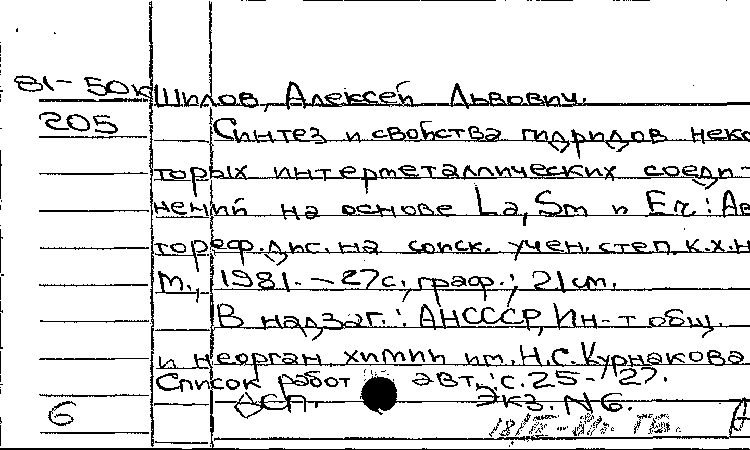 81-50к Шилов, Алексей Львович.
205 Синтез и свойства гидридов неко
торых интерметаллических соеди-
нений на основе La, Sm и Er: Ав
тореф. дис. на соиск. учен. степ. к.х.н
М., 1981. - 27с., граф.; 21 см.
В надзаг.: АН СССР, Ин-т общ.
и неорган химии им. Н.С. Курнакова
Список работ авт.: с. 25-27.
ДСП. Экз. N6.
6